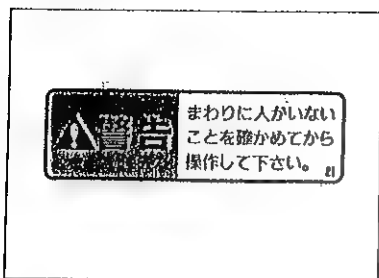 警告
まわりに人がいない
ことを確かめてから
操作して下さい。